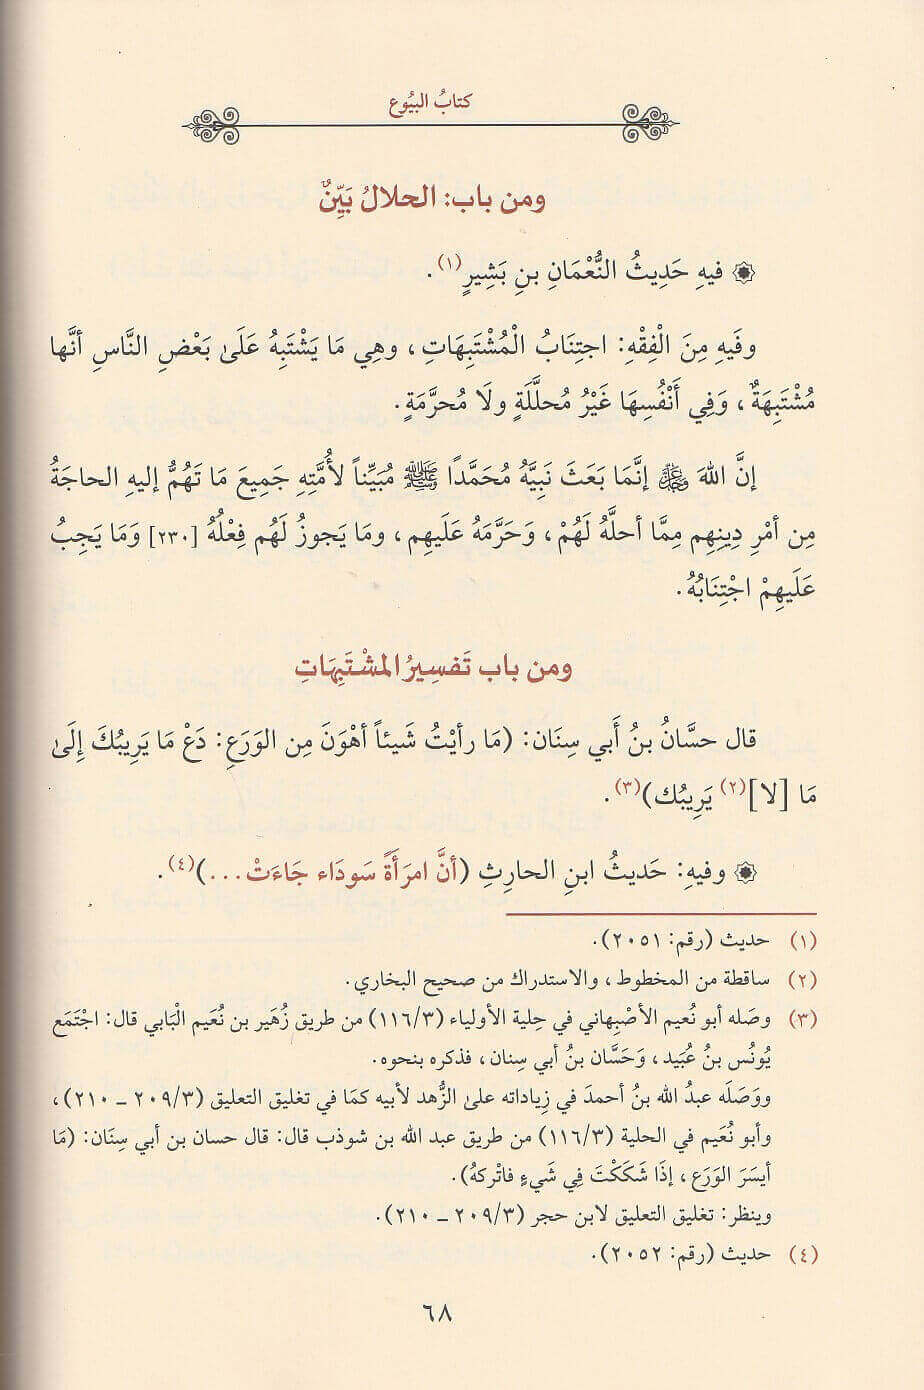 كتابُ البيُوع
ومن باب: الحلالُ بَيِّنٌ
فيهِ حَدِيثُ النُّعْمَانِ بنِ بَشِيرٍ(١).
وفَيهِ مِنَ الْفِقْهِ: اجتِنَابُ الْمُشْتَبِهَاتِ، وهِي مَا يَشْتَبِهُ عَلَىٰ بَعْضِ النَّاسِ أنَّها
مُشْتَبِهَةٌ، وَفِي أَنْفُسِهَا غَيْرُ مُحلَّلَةٍ ولَا مُحرَّمَةٍ.
إنَّ اللهَ ﷻ إنَّمَا بَعَثَ نَبِيَّهُ مُحَمَّدًا ﷺ مُبَيِّناً لأُمَّتِهِ جَمِيعَ مَا تَهُمُّ إليهِ الحاجَةُ
مِن أمْرِ دِينِهِم مِمَّا أحلَّهُ لَهُمْ، وَحَرَّمَهُ عَلَيهِم، ومَا يَجوزُ لَهُم فِعْلُهُ [٢٣٠] وَمَا يَجِبُ
عَلَيهِمْ اجْتِنَابُهُ.
ومن باب تَفسِيرُ المشْتَبِهَاتِ
قال حسَّانُ بنُ أَبي سِنَان: (مَا رأيْتُ شَيئاً أهْوَنَ مِن الوَرَعِ: دَعْ مَا يَرِيبُكَ إِلَىٰ
مَا [لا](٢) يَرِيبُك)(٣).
وفيهِ: حَديثُ ابنِ الحارِثِ (أنَّ امرَأَةً سَودَاء جَاءَتْ...)(٤).
(١) حديث (رقم: ٢٠٥١).
(٢) ساقطة من المخطوط، والاستدراك من صحيح البخاري.
(٣) وصَله أبو نُعيم الأصْبِهاني في حِلية الأولياء (١١٦/٣) من طريق زُهَير بن نُعَيم الْبَابي قال: اجْتَمَع
يُونُس بنُ عُبَيد، وَحَسَّان بنُ أبي سِنان، فذكره بنحوه.
ووَصَلَه عبدُ الله بنُ أحمدَ في زِياداته علىٰ الزُّهد لأبيه كمَا في تغليق التعليق (٢٠٩/٣ ـ ٢١٠)،
وأبو نُعَيم في الحلية (١١٦/٣) من طريق عبد الله بن شوذب قال: قال حسان بن أبي سِنَان: (مَا
أيسَرَ الوَرَع، إذَا شَكَكْتَ فِي شَيءٍ فاتْركهُ).
وينظر: تغليق التعليق لابن حجر (٢٠٩/٣ ـ ٢١٠).
(٤) حديث (رقم: ٢٠٥٢).
٦٨